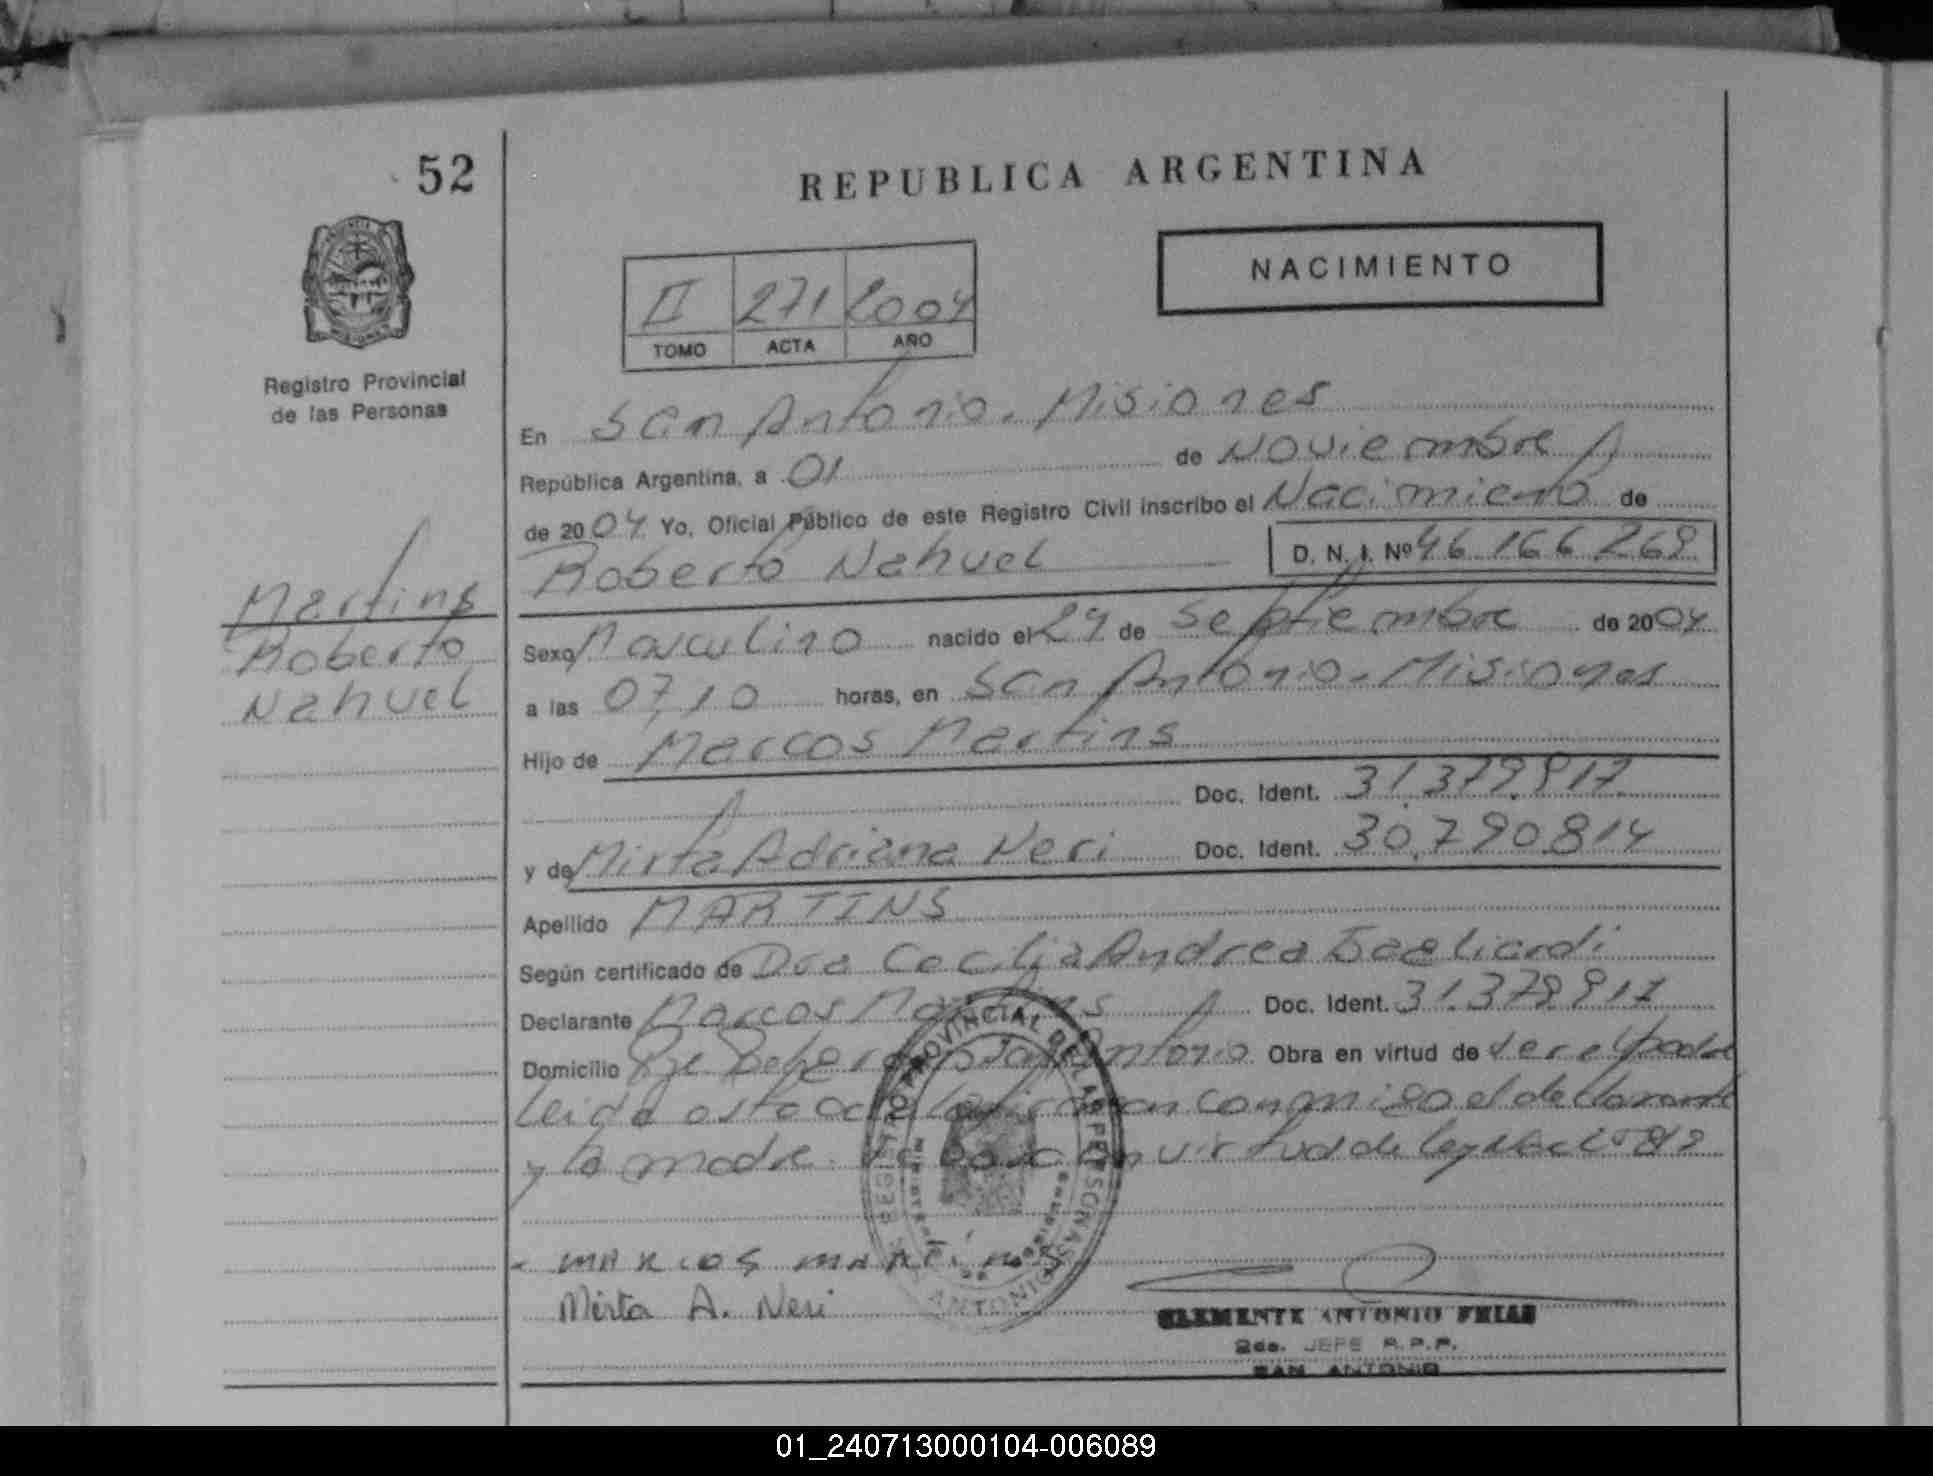 52
REPUBLICA ARGENTINA
NACIMIENTO
II 271 2004
TOMO ACTA AÑO
Registro Provincial
de las Personas
En San Antonio. Misiones
República Argentina, a 01 de Noviembre
de 2004 Yo, Oficial Público de este Registro Civil inscribo el Nacimiento de
Roberto Nahuel D. N. I. Nº 46.166.269
Martins
Roberto
Nahuel
Sexo Masculino nacido el 24 de Septiembre de 2004
a las 07,10 horas, en San Antonio. Misiones
Hijo de Marcos Martins
Doc. Ident. 31.379.917
y de Mirta Adriana Neri Doc. Ident. 30.790.814
Apellido MARTINS
Según certificado de Dra Cecilia Andrea
Declarante Marcos Martins Doc. Ident. 31.379.917
Domicilio San Antonio Obra en virtud de ser el padre
Leida esta acta la firman conmigo el declarante
y la madre. en virtud de ley
REGISTRO PROVINCIAL DE LAS PERSONAS
SAN ANTONIO
MARCOS MARTINS
Mirta A. Neri
CLEMENTE ANTONIO FRIAS
2do. JEFE R.P.P.
SAN ANTONIO
01_240713000104-006089